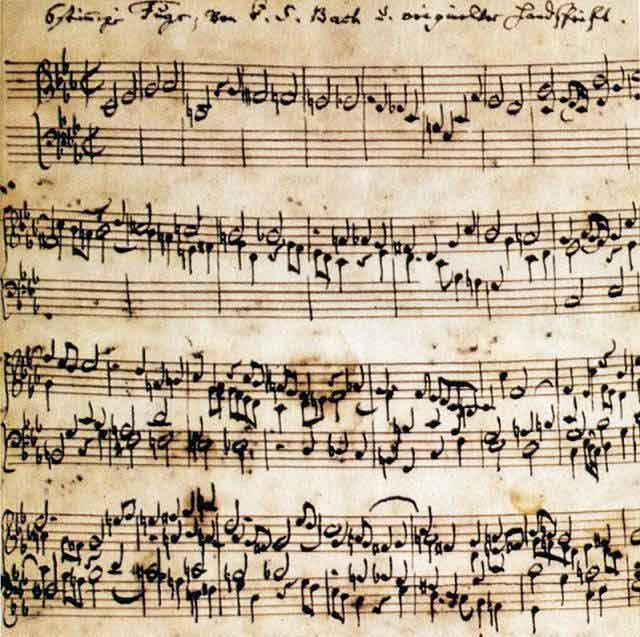 6stim̅ige Fuge, von J. S. Bach u. origineller Handschrift.